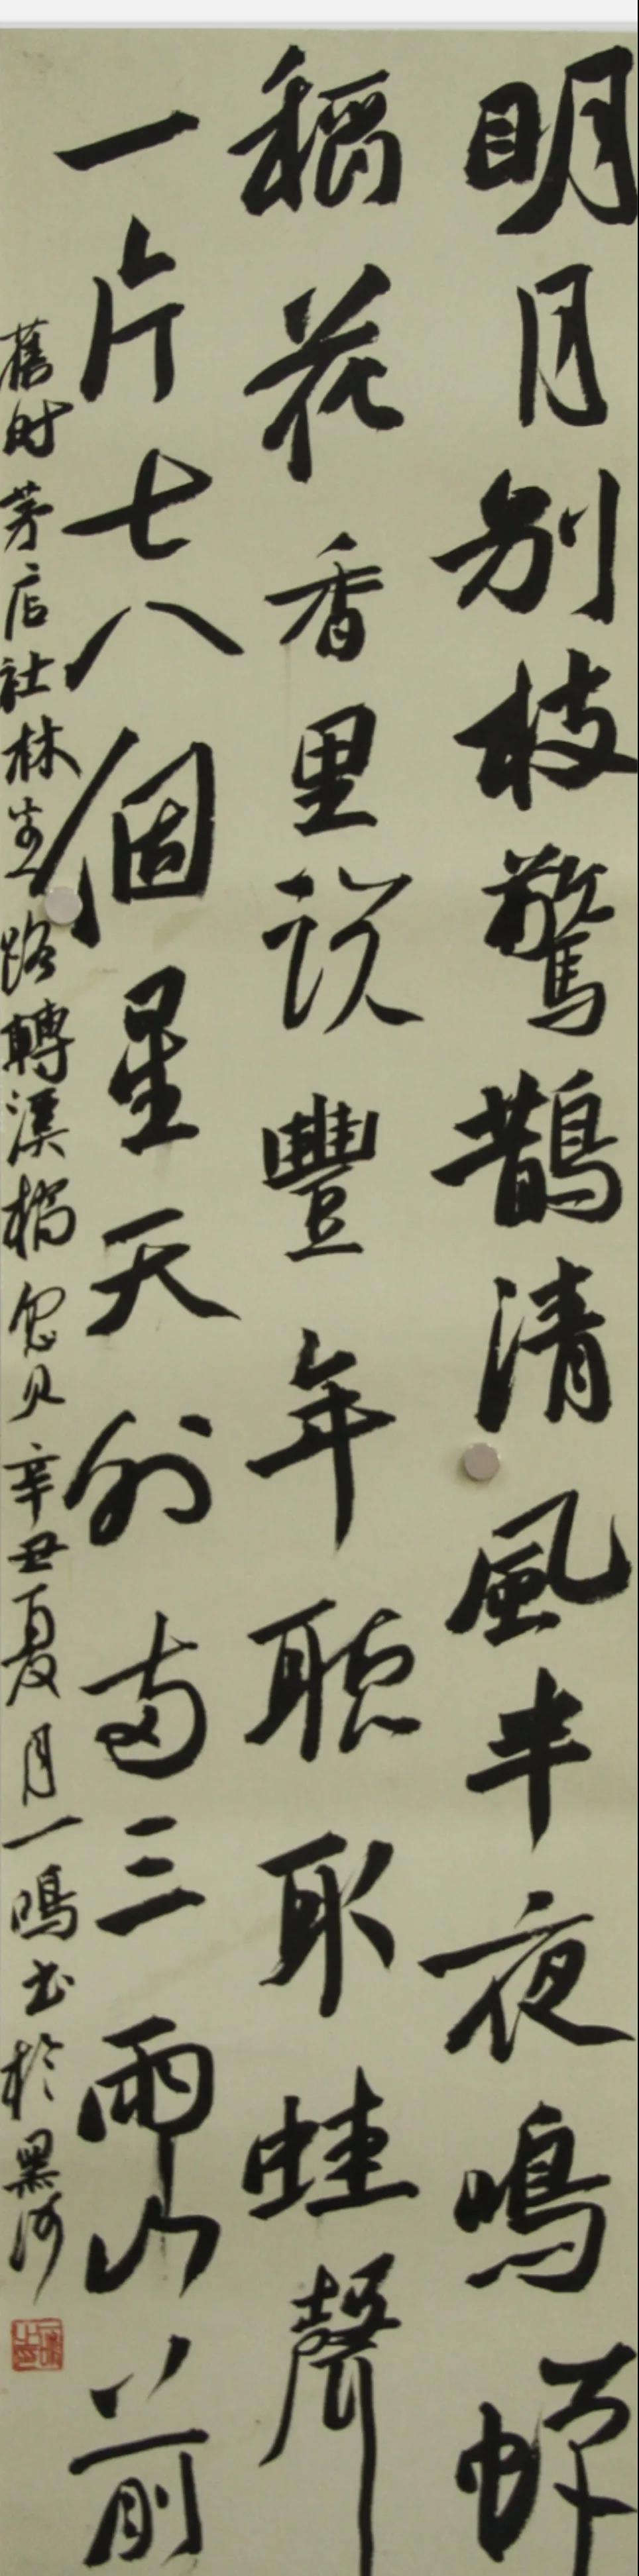 明月别枝驚鵲清風半夜鳴蟬
稻花香里説豐年聽取蛙聲
一片七八個星天外兩三雨山前
舊時茅店社林邊路轉溪橋忽見辛丑夏月一鳴書於黑河